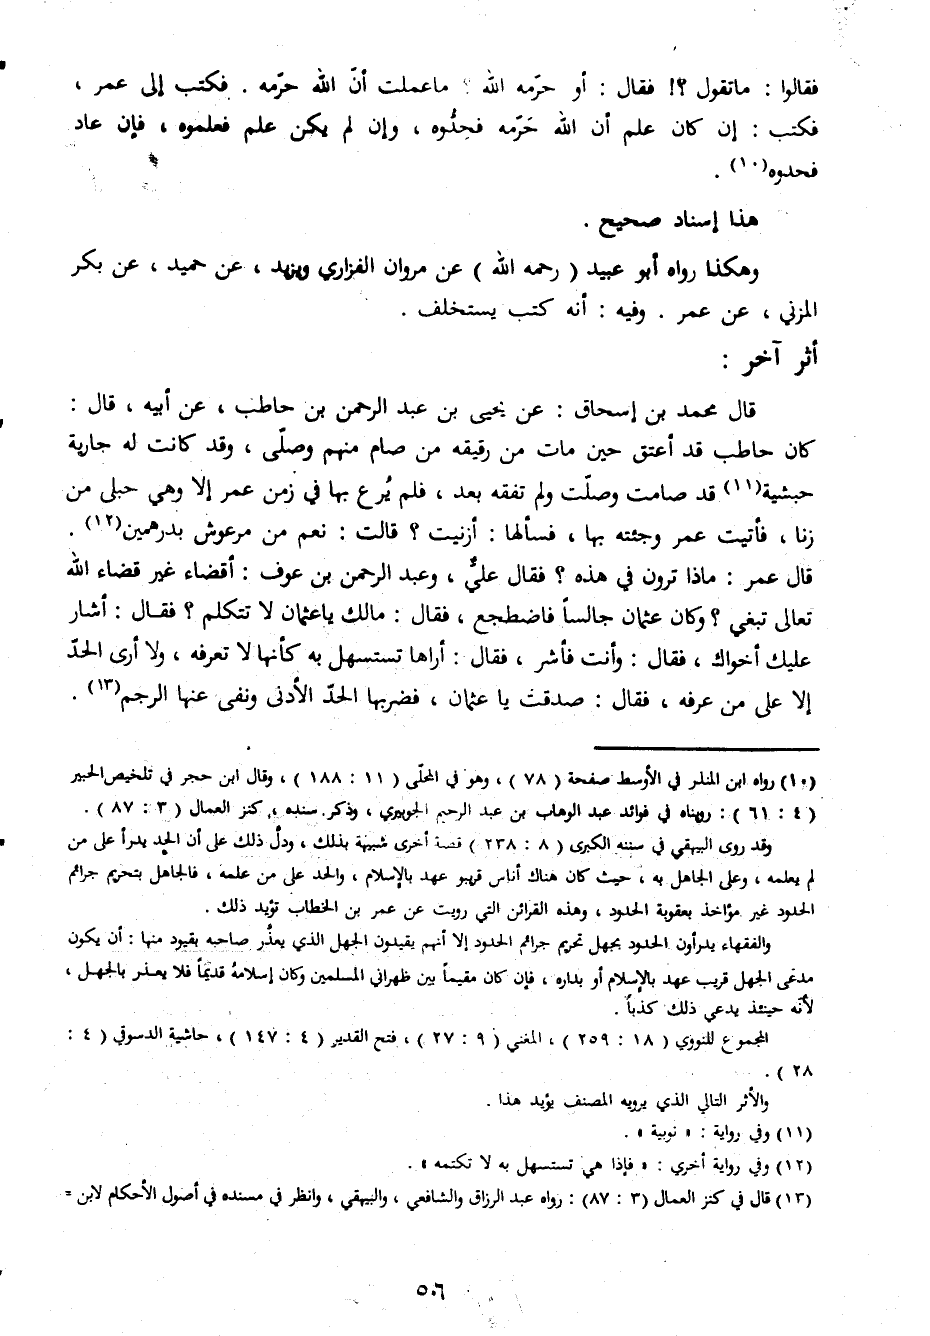 فقالوا : ماتقول ؟! فقال : أو حرّمه الله ؟ ماعملت أنّ الله حرّمه . فكتب إلى عمر ،
فكتب : إن كان علم أن الله حَرّمه فحدُّوه ، وإن لم يكن علم فعلموه ، فإن عاد
فحدوه(١٠) .
هذا إسناد صحيح .
وهكذا رواه أبو عبيد ( رحمه الله ) عن مروان الفزاري ويزيد ، عن حميد ، عن بكر
المزني ، عن عمر . وفيه : أنه كتب يستخلف .
أثر آخر :
قال محمد بن إسحاق : عن يحيى بن عبد الرحمن بن حاطب ، عن أبيه ، قال :
كان حاطب قد أعتق حين مات من رقيقه من صام منهم وصلّى ، وقد كانت له جارية
حبشية(١١) قد صامت وصلّت ولم تفقه بعد ، فلم يُرع بها في زمن عمر إلا وهي حبلى من
زنا ، فأتيت عمر وجئته بها ، فسألها : أزنيت ؟ قالت : نعم من مرعوش بدرهمين(١٢) .
قال عمر : ماذا ترون في هذه ؟ فقال عليٌّ ، وعبد الرحمن بن عوف : أقضاء غير قضاء الله
تعالى تبغي ؟ وكان عثمان جالساً فاضطجع ، فقال : مالك ياعثمان لا تتكلم ؟ فقال : أشار
عليك أخواك ، فقال : وأنت فأشر ، فقال : أراها تستسهل به كأنها لا تعرفه ، ولا أرى الحدّ
إلا على من عرفه ، فقال : صدقت يا عثمان ، فضربها الحدّ الأدنى ونفى عنها الرجم(١٣) .
(١٠) رواه ابن المنذر في الأوسط صفحة ( ٧٨ ) ، وهو في المحلّى ( ١١ : ١٨٨ ) ، وقال ابن حجر في تلخيص الحبير
( ٤ : ٦١ ) : رويناه في فوائد عبد الوهاب بن عبد الرحيم الجوبيري ، وذكر سنده ، كنز العمال ( ٣ : ٨٧ ) .
وقد روى البيهقي في سننه الكبرى ( ٨ : ٢٣٨ ) قصة أخرى شبيهة بذلك ، ودلّ ذلك على أن الحد يدرأ على من
لم يعلمه ، وعلى الجاهل به ، حيث كان هناك أناس قريبو عهد بالإسلام ، والحد على من علمه ، فالجاهل بتحريم جرائم
الحدود غير مؤاخذ بعقوبة الحدود ، وهذه القرائن التي رويت عن عمر بن الخطاب تؤيد ذلك .
والفقهاء يدرأون الحدود بجهل تحريم جرائم الحدود إلا أنهم يقيدون الجهل الذي يعذُر صاحبه بقيود منها : أن يكون
مدعَى الجهل قريب عهد بالإسلام أو بداره ، فإن كان مقيماً بين ظهراني المسلمين وكان إسلامهُ قديمًا فلا يعذر بالجهل ،
لأنّه حينئذ يدعي ذلك كذباً .
المجموع للنووي ( ١٨ : ٢٥٩ ) ، المغني ( ٩ : ٢٧ ) ، فتح القدير ( ٤ : ١٤٧ ) ، حاشية الدسوقي ( ٤ :
٢٨ ) .
والأثر التالي الذي يرويه المصنف يؤيد هذا .
(١١) وفي رواية : « نوبية » .
(١٢) وفي رواية أخري : « فإذا هي تستسهل به لا تكتمه » .
(١٣) قال في كنز العمال (٣ : ٨٧) : رواه عبد الرزاق والشافعي ، والبيهقي ، وانظر في مسنده في أصول الأحكام لابن =
٥٠٦